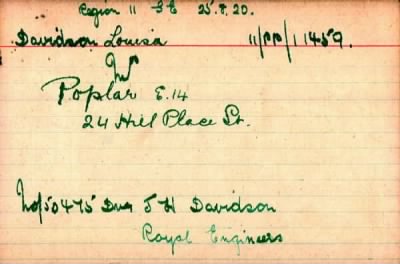 Region 11 SE 25.8.20.
Davidson Louisa 11/PP/11459.
Mrs
Poplar E.14
24 Hill Place St.
No/50475 Dvr J H Davidson
Royal Engineers